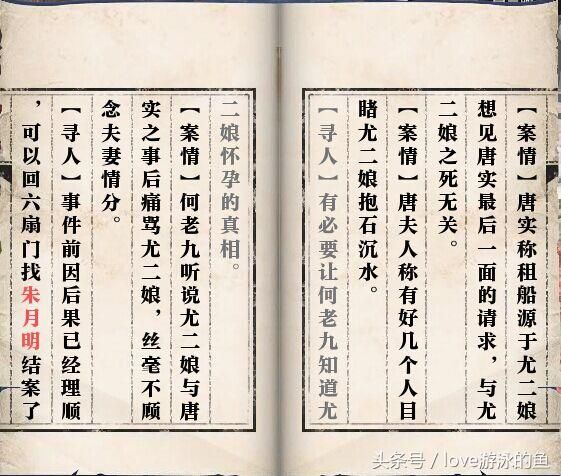 【案情】唐实称租船源于尤二娘
想见唐实最后一面的请求，与尤
二娘之死无关。
【案情】唐夫人称有好几个人目
睹尤二娘抱石沉水。
【寻人】有必要让何老九知道尤
二娘怀孕的真相。
【案情】何老九听说尤二娘与唐
实之事后痛骂尤二娘，丝毫不顾
念夫妻情分。
【寻人】事件前因后果已经理顺
，可以回六扇门找朱月明结案了
头条号／love游泳的鱼